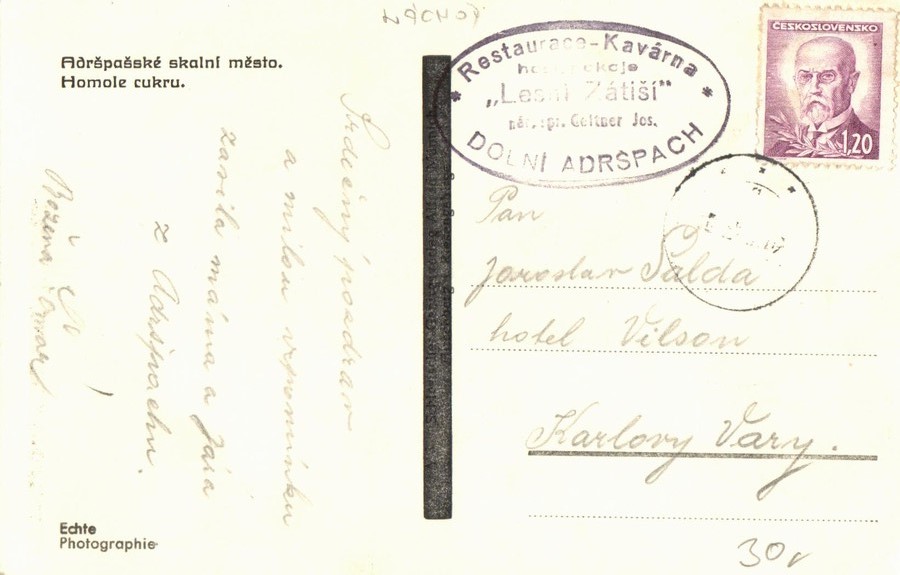 NÁCHOD
Adršpašské skalní město.
Homole cukru.
Restaurace-Kavárna
„Lesní Zátiší"
Geltner Jos.
DOLNÍ ADRŠPACH
ČESKOSLOVENSKO
1,20
Srdečný pozdrav
a milou vzpomínku
zasílá máma a Jára
z Adršpachu.
Božena
Pan
Jaroslav Šalda
hotel Vilson
Karlovy Vary.
Echte
Photographie
30,